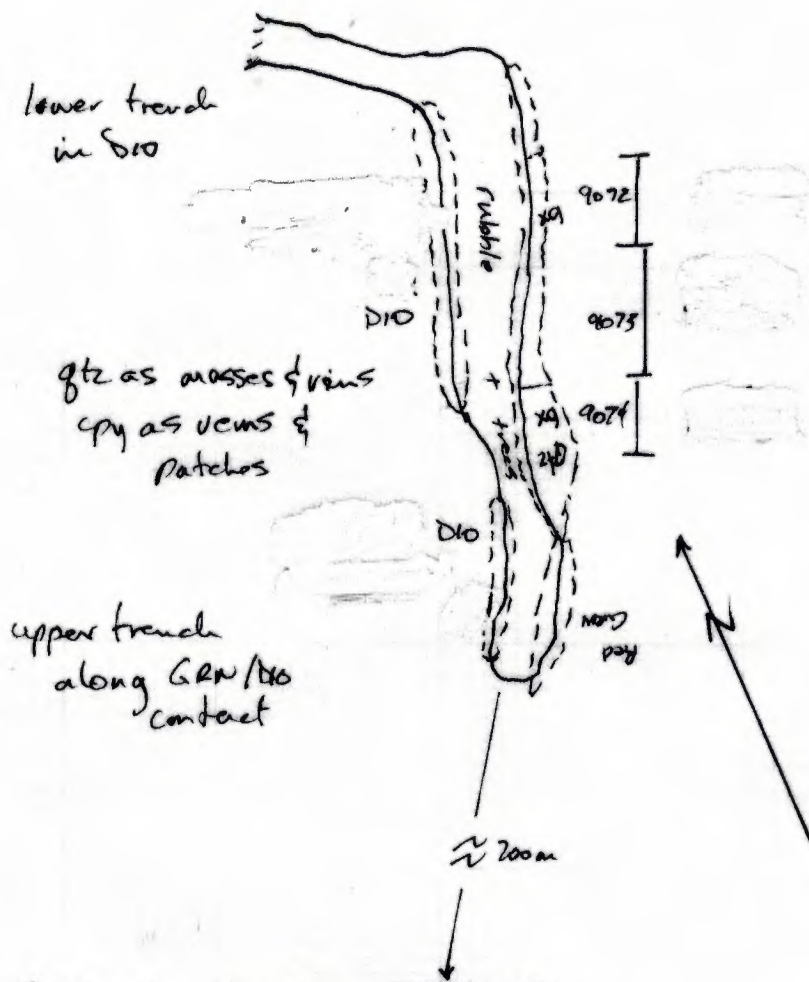 lower trench
in DIO
rubble
9072
bx
DIO
9073
qtz as masses & veins
cpy as veins &
patches
+
trees
9074
bx
qtz
DIO
upper trench
along GRN/DIO
contact
Red
GRN
N
≈ 200m